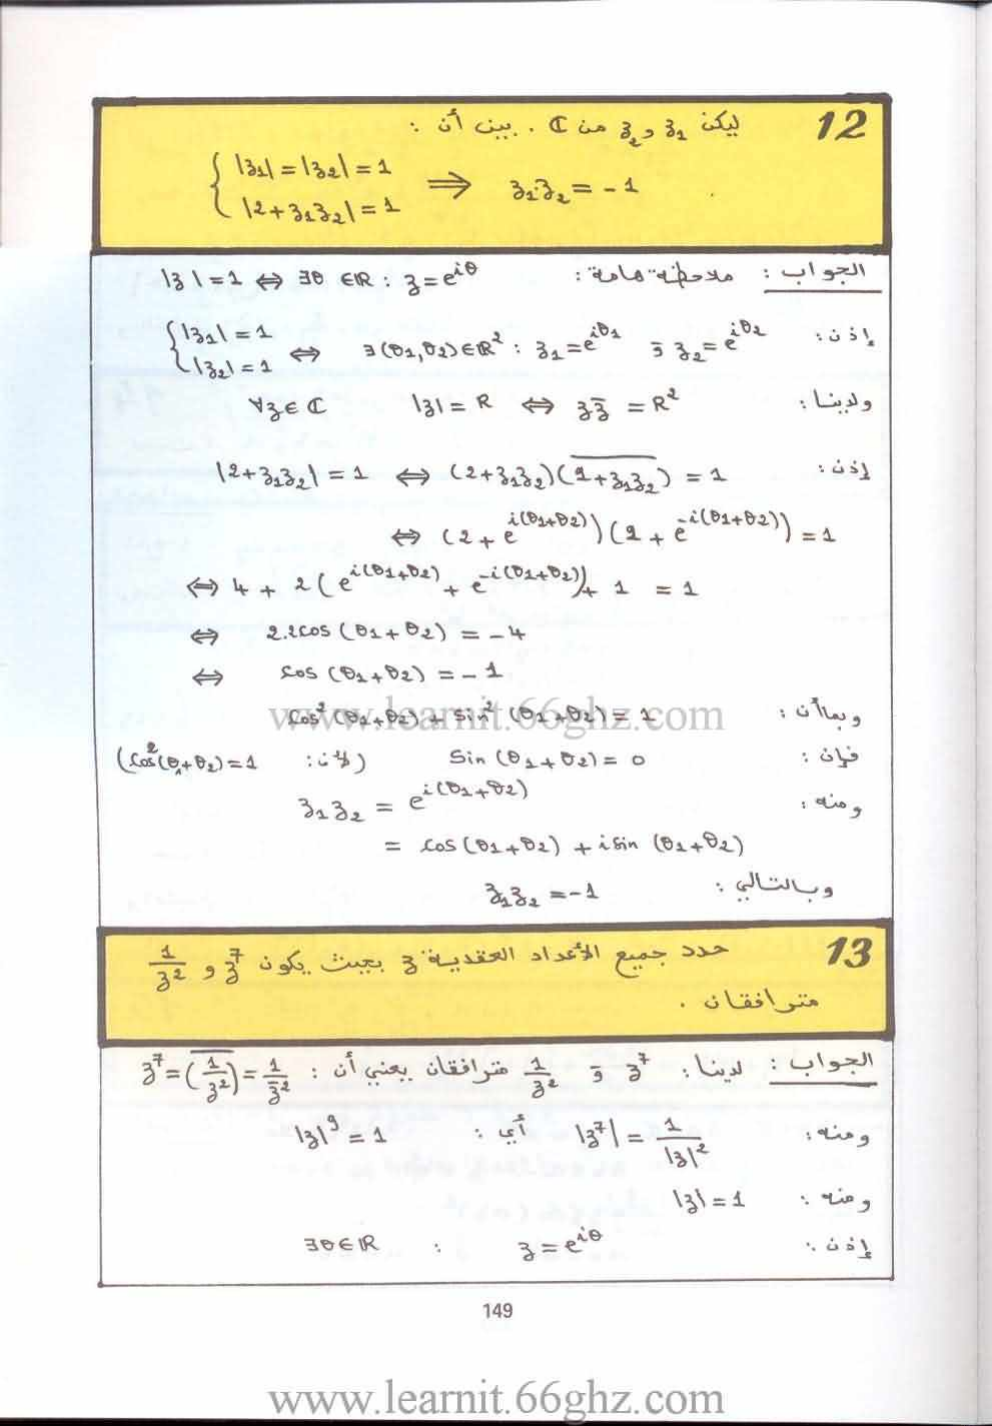 12 ليكن z₁ و z₂ من ℂ . بين أن :
{ |z₁| = |z₂| = 1
|2 + z₁z₂| = 1 ⟹ z₁.z₂ = - 1
الجواب : ملاحظة هامة : |z| = 1 ⟺ ∃θ ∈ ℝ : z = e^{iθ}
إذن : { |z₁| = 1
|z₂| = 1 ⟺ ∃(θ₁,θ₂) ∈ ℝ² : z₁ = e^{iθ₁} و z₂ = e^{iθ₂}
ولدينا : ∀z ∈ ℂ |z| = R ⟺ z z̄ = R²
إذن : |2 + z₁z₂| = 1 ⟺ (2 + z₁z₂)(\overline{2 + z₁z₂}) = 1
⟺ (2 + e^{i(θ₁+θ₂)})(2 + e^{-i(θ₁+θ₂)}) = 1
⟺ 4 + 2(e^{i(θ₁+θ₂)} + e^{-i(θ₁+θ₂)}) + 1 = 1
⟺ 2.2cos(θ₁+θ₂) = -4
⟺ cos(θ₁+θ₂) = -1
وبما أن : cos²(θ₁+θ₂) + sin²(θ₁+θ₂) = 1
www.learnit.66ghz.com
فإن : sin(θ₁+θ₂) = 0 (لأن : cos²(θ₁+θ₂) = 1)
ومنه : z₁z₂ = e^{i(θ₁+θ₂)}
= cos(θ₁+θ₂) + i sin(θ₁+θ₂)
وبالتالي : z₁z₂ = -1
13 حدد جميع الأعداد العقدية z بحيث يكون z⁷ و 1/z²
مترافقان .
الجواب : لدينا : z⁷ و 1/z² مترافقان يعني أن : z⁷ = (\overline{1/z²}) = 1/z̄²
ومنه : |z⁷| = 1/|z|² أي : |z|⁹ = 1
ومنه : |z| = 1
إذن : z = e^{iθ} : ∃θ ∈ ℝ
149
www.learnit.66ghz.com